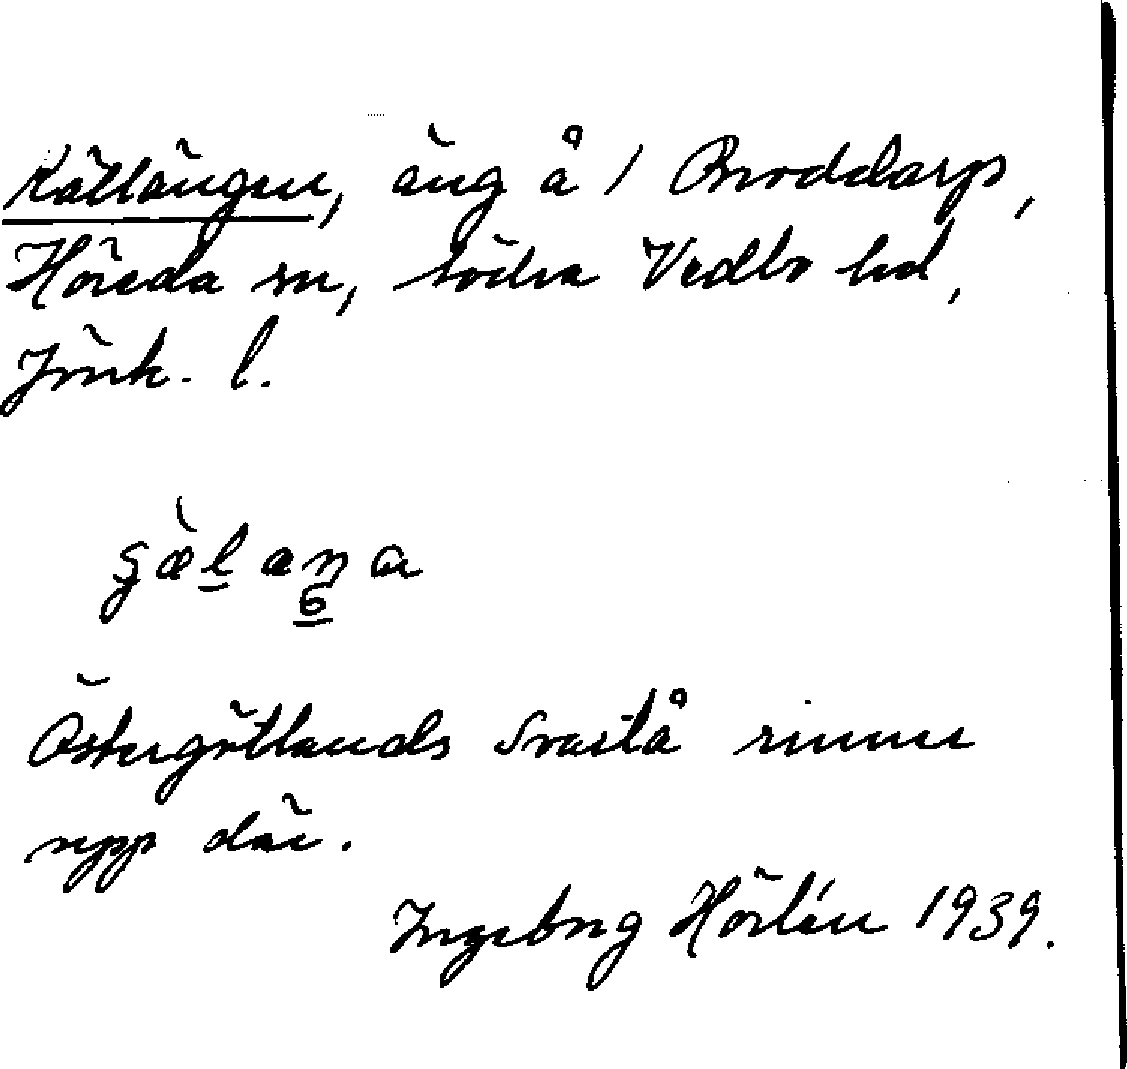 Källängen, äng å / Broddarp,
Höreda sn, södra Vedbo hd,
Jönk. l.
Östergötlands Svartå rinner
upp där.
Ingeborg Hörlén 1939.